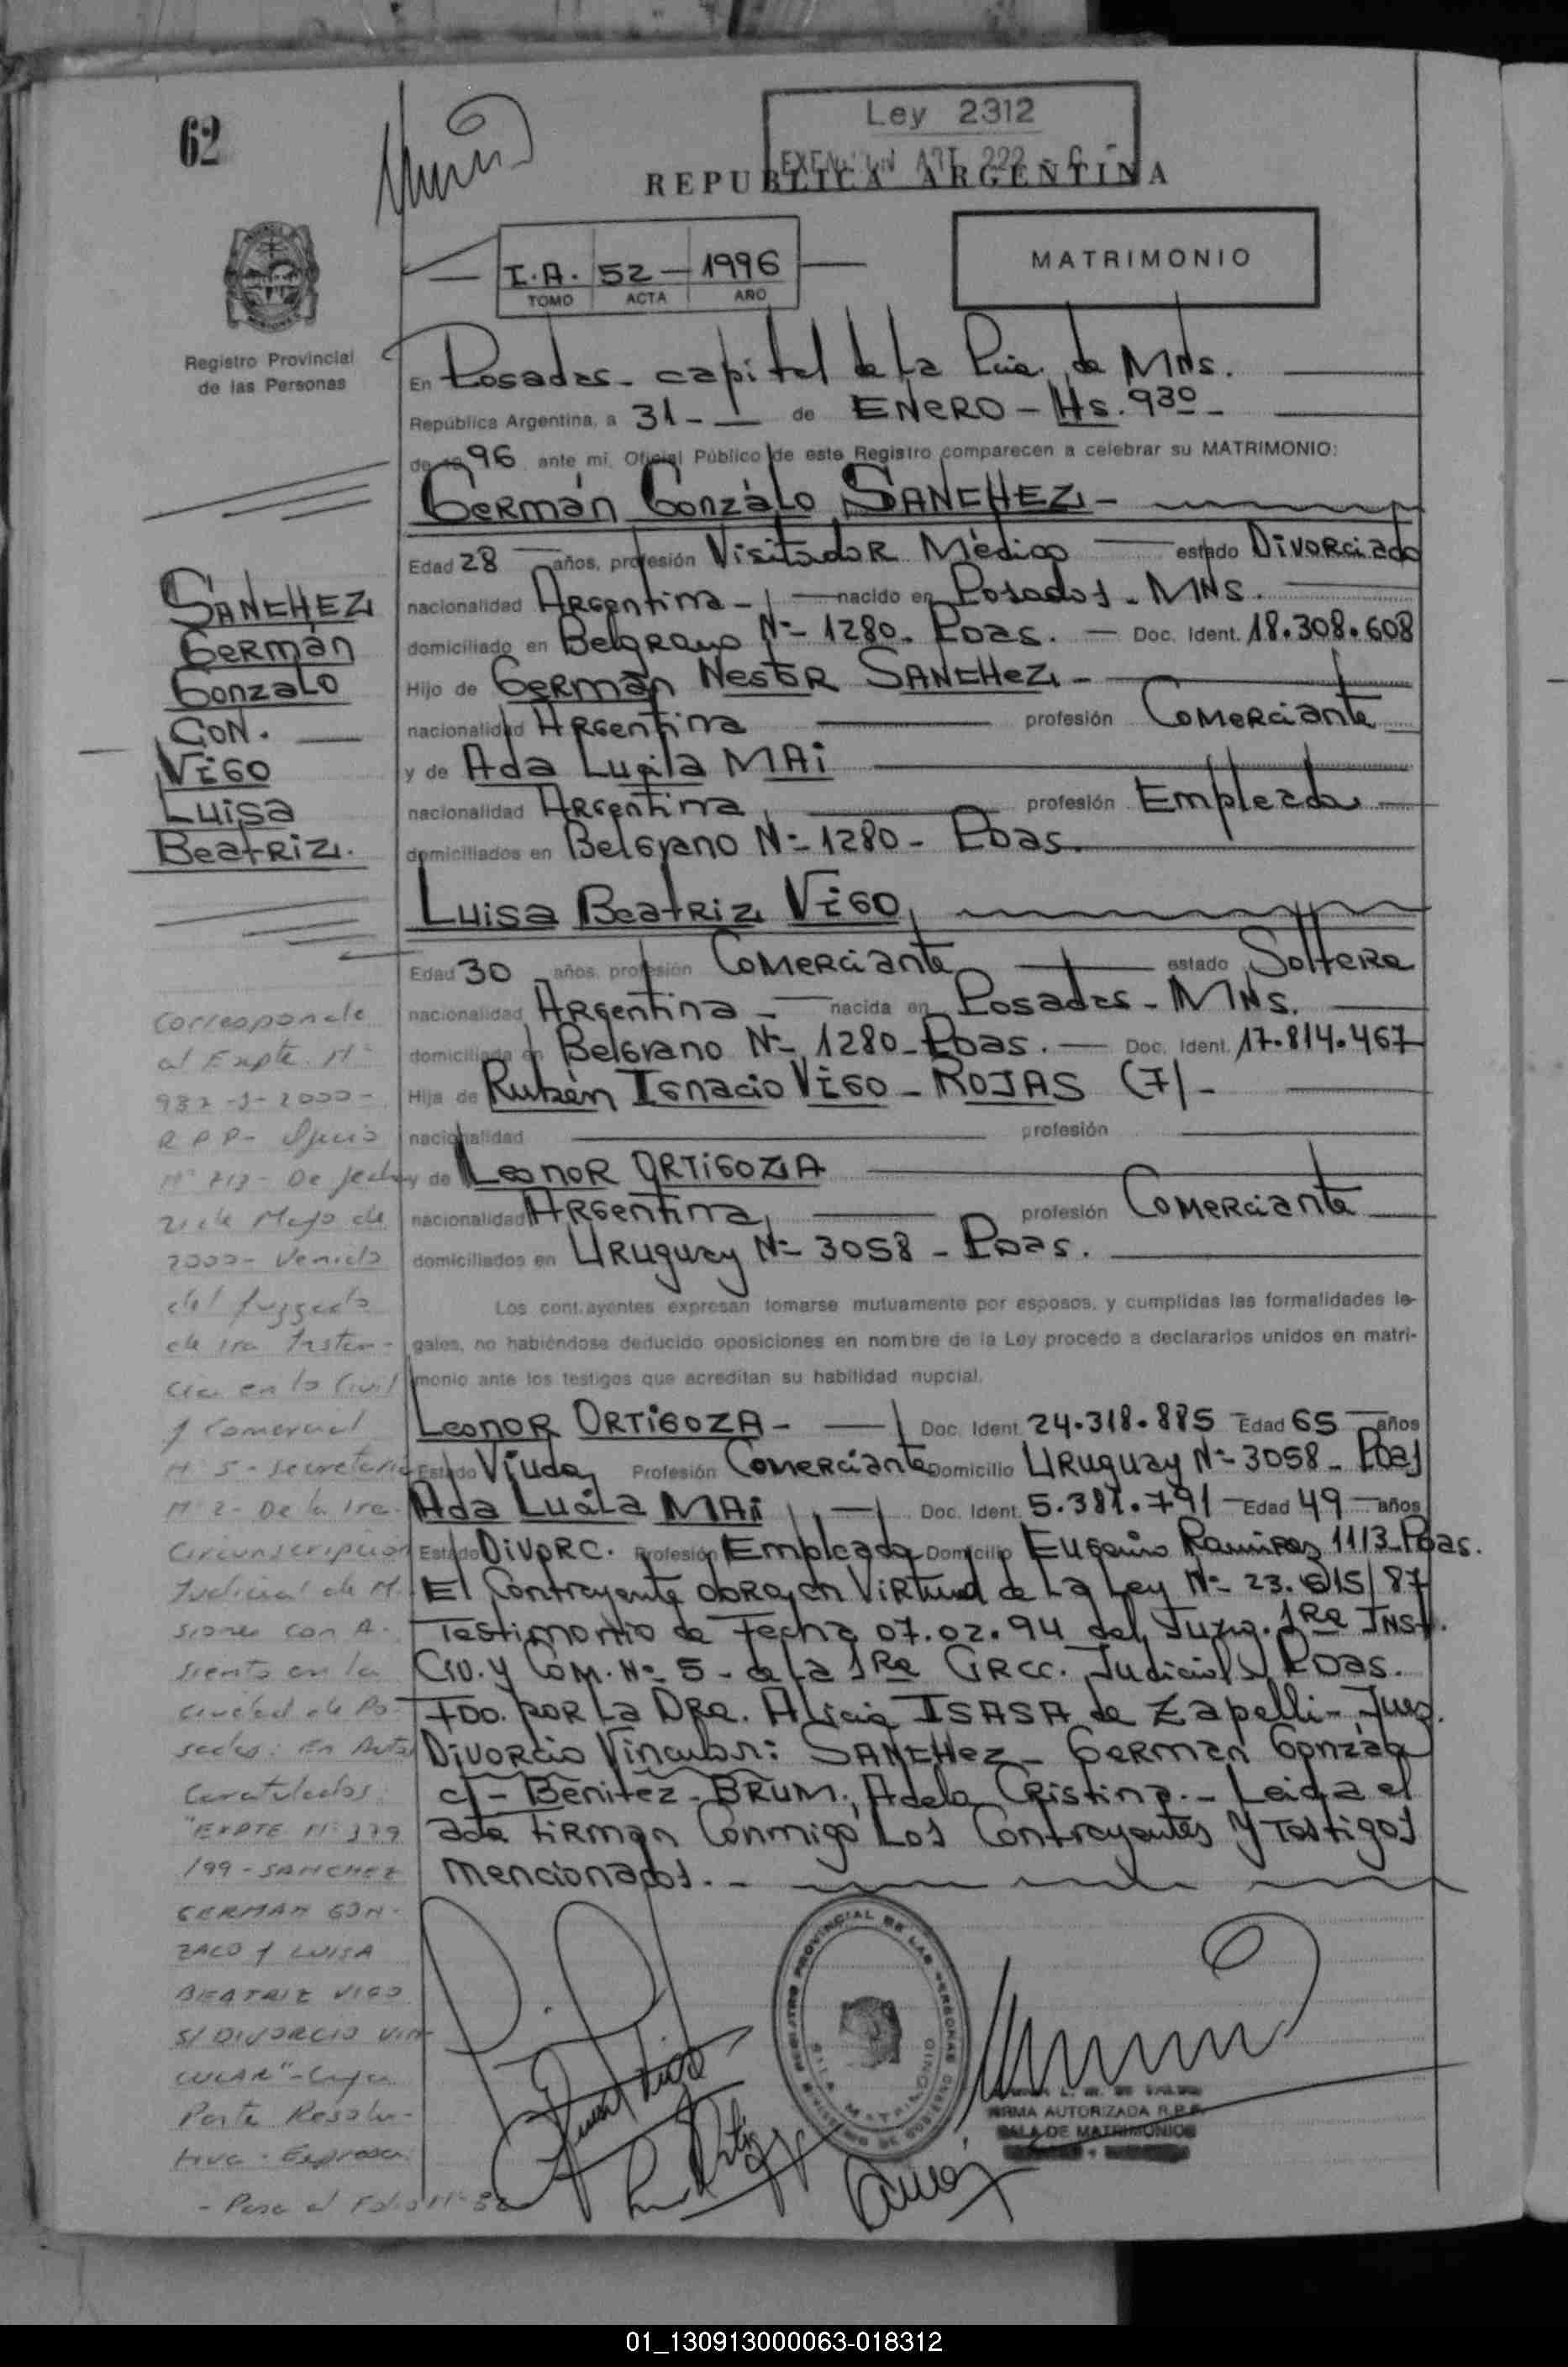 62
Ley 2312
ART. 222
REPUBLICA ARGENTINA
I.A. 52 — 1996
TOMO ACTA AÑO
MATRIMONIO
Registro Provincial
de las Personas
En Posadas - capital de La Pcia. de MNS.
República Argentina, a 31 - I de ENERO - Hs. 9³⁰ -
de 1996 ante mi, Oficial Público de este Registro comparecen a celebrar su MATRIMONIO:
Germán Gonzalo SANCHEZ -
Edad 28 años, profesión Visitador Médico estado Divorciado
nacionalidad Argentina - nacido en Posadas - MNS.
domiciliado en Belgrano Nº 1280. Pdas. — Doc. Ident. 18.308.608
Hijo de Germán Nestor SANCHEZ -
nacionalidad Argentina profesión Comerciante
y de Ada Lucila MAI
nacionalidad Argentina profesión Empleada
domiciliados en Belgrano Nº 1280 - Pdas.
SANCHEZ
Germán
Gonzalo
CON. —
VIGO
Luisa
Beatriz.
Luisa Beatriz VIGO
Edad 30 años, profesión Comerciante estado Soltera
nacionalidad Argentina - nacida en Posadas - MNS.
domiciliada en Belgrano Nº 1280 - Pdas. — Doc. Ident. 17.814.467
Hija de Rubén Ignacio VIGO - ROJAS (7) -
nacionalidad profesión
y de Leonor ORTIGOZA
nacionalidad Argentina profesión Comerciante
domiciliados en Uruguay Nº 3058 - Pdas.
Los contrayentes expresan tomarse mutuamente por esposos, y cumplidas las formalidades le-
gales, no habiéndose deducido oposiciones en nombre de la Ley procedo a declararlos unidos en matri-
monio ante los testigos que acreditan su habilidad nupcial.
Leonor ORTIGOZA - Doc. Ident. 24.318.885 Edad 65 años
Estado Viuda Profesión Comerciante Domicilio Uruguay Nº 3058 - Pdas
Ada Lucila MAI Doc. Ident. 5.381.791 Edad 49 años
Estado Divorc. Profesión Empleada Domicilio Eugenio Ramirez 1113 - Pdas.
El Contrayente obra, en Virtud de La Ley Nº 23.515/87
Testimonio de Fecha 07.02.94 del Juzg. 1ra Inst.
Civ. y Com. Nº 5 - de la 1ra Circc. Judicial Pdas.
FDO. por La Dra. Alicia ISASA de Zapelli - Juez.
Divorcio Vincular: SANCHEZ - German Gonzalo
c/ - Benitez - BRUM, Adela Cristina. - Leida el
acta firman Conmigo Los Contrayentes y Testigos
mencionados. -
Corresponde
al Expte. Nº
932 -J- 2000 -
R P P - Oficio
Nº 713 - De fecha
21 de Mayo de
2000 - Venido
del Juzgado
de 1ra Instan-
cia en lo Civil
y Comercial
Nº 5 - Secretaria
Nº 2 - De la 1ra.
Circunscripcion
Judicial de Mi-
siones con A-
siento en la
ciudad de Po-
sadas: En Autos
Caratulados:
"EXPTE Nº 339
/99 - SANCHEZ
GERMAN GON-
ZALO Y LUISA
BEATRIZ VIGO
S/ DIVORCIO VIN-
CULAR" - Cuya
Parte Resolu-
tiva - Expresa:
- Pasa al Folio Nº
REGISTRO PROVINCIAL DE LAS PERSONAS
MINISTERIO DE GOBIERNO
SALA MATRIMONIO
FIRMA AUTORIZADA R.P.P.
SALA DE MATRIMONIOS
01_130913000063-018312